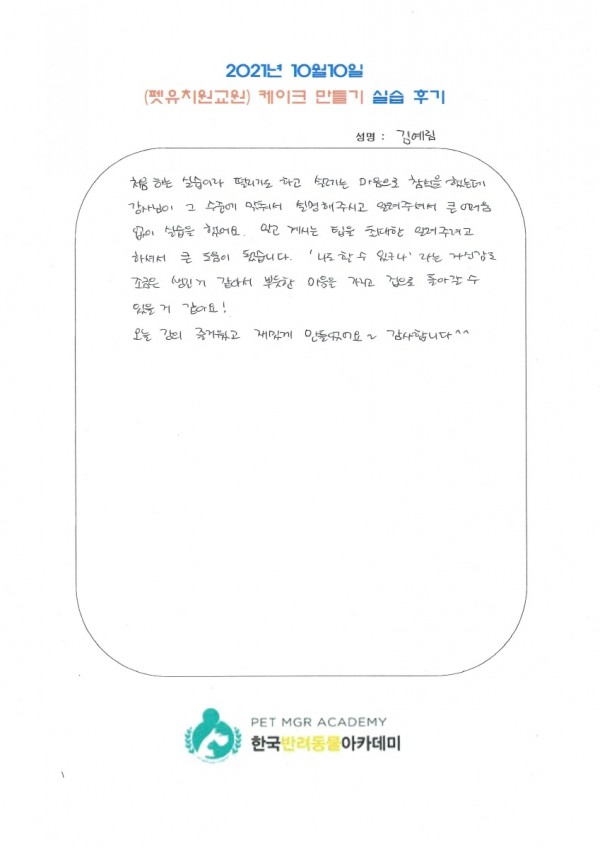 2021년 10월10일
(펫유치원교원) 케이크 만들기 실습 후기
성명 : 김예림
처음 하는 실습이라 떨리기도 하고 설레는 마음으로 참석을 했는데
강사님이 그 수준에 맞춰서 설명해주시고 알려주셔서 큰 어려움
없이 실습을 했어요. 알고 계시는 팁을 최대한 알려주려고
하셔서 큰 도움이 됐습니다. '나도 할 수 있구나' 라는 자신감도
조금은 생긴거 같아서 뿌듯한 마음을 가지고 집으로 돌아갈 수
있을 거 같아요!
오늘 강의 즐거웠고 재밌게 만들었어요~ 감사합니다^^
PET MGR ACADEMY
한국반려동물아카데미